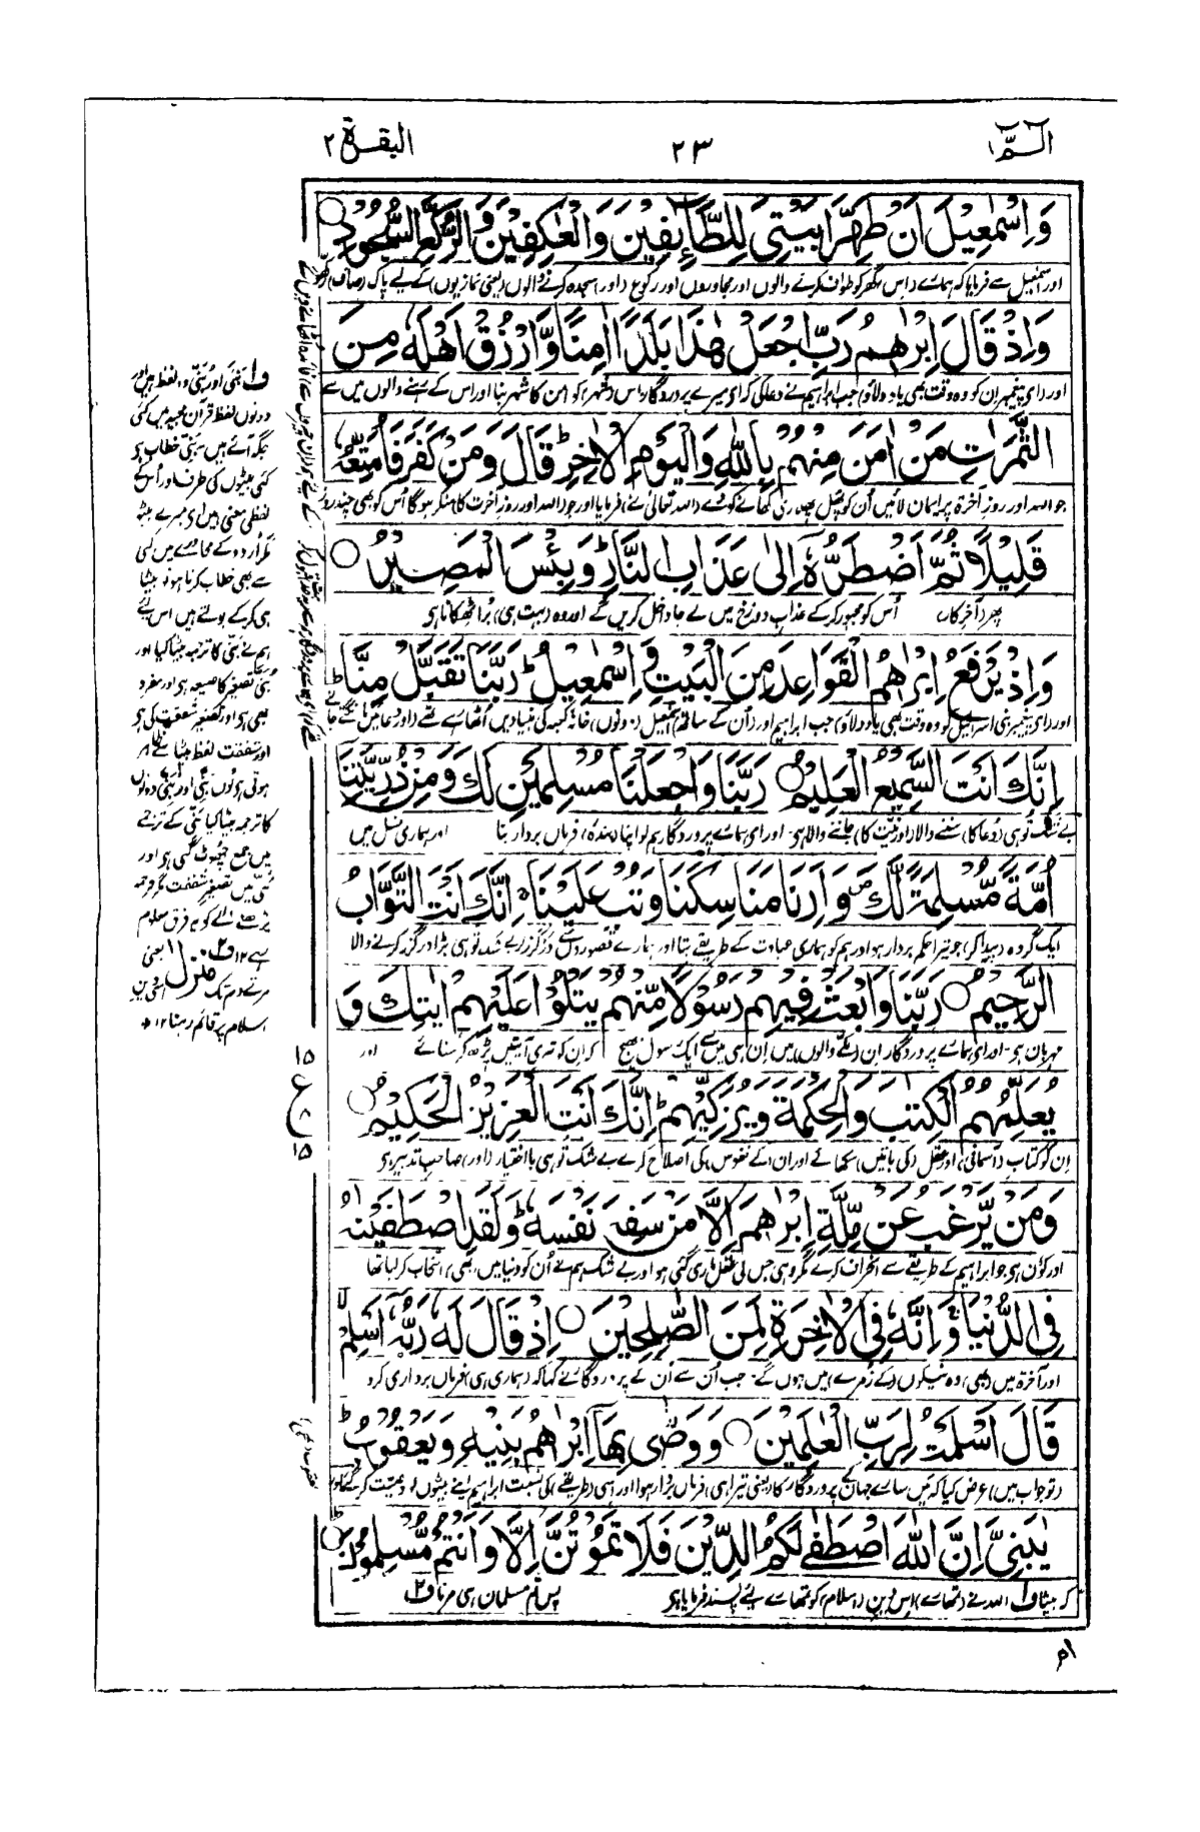 الٓمّٓ ١
٢٣
البقرة ٢
وَاِسْمٰعِيْلَ اَنْ طَهِّرَا بَيْتِيَ لِلطَّآئِفِيْنَ وَالْعٰكِفِيْنَ وَالرُّكَّعِ السُّجُوْدِ ○
اور اسمٰعیل سے فرمایا کہ ہمارے (اس) گھر کو طواف کرنے والوں اور مجاوروں اور رکوع (اور) سجدہ کرنے والوں (یعنی نمازیوں) کے لیے پاک (صاف) رکھو
وَاِذْ قَالَ اِبْرٰهٖمُ رَبِّ اجْعَلْ هٰذَا بَلَدًا اٰمِنًا وَّارْزُقْ اَهْلَهٗ مِنَ
اور (اے پیغمبر ان کو وہ وقت بھی یاد دلاؤ) جب ابراہیم نے دعا کی کہ اے میرے پروردگار اس (شہر) کو امن کا شہر بنا اور اس کے رہنے والوں میں سے
الثَّمَرٰتِ مَنْ اٰمَنَ مِنْهُمْ بِاللّٰهِ وَالْيَوْمِ الْاٰخِرِ ؕ قَالَ وَمَنْ كَفَرَ فَاُمَتِّعُهٗ
جو اللہ اور روز آخرۃ پر ایمان لائیں اُن کو پھل پھلاری کھانے کو دے (اللہ تعالیٰ نے) فرمایا اور جو (اللہ اور روز آخرت کا) منکر ہوگا اُس کو بھی چند روز
قَلِيْلًا ثُمَّ اَضْطَرُّهٗٓ اِلٰى عَذَابِ النَّارِ ؕ وَبِئْسَ الْمَصِيْرُ ○
پھر (آخر کار) اُس کو مجبور کر کے عذاب دوزخ میں لے جا داخل کریں گے اور وہ (بہت ہی) بُرا ٹھکانا ہی
وَاِذْ يَرْفَعُ اِبْرٰهٖمُ الْقَوَاعِدَ مِنَ الْبَيْتِ وَاِسْمٰعِيْلُ ؕ رَبَّنَا تَقَبَّلْ مِنَّا ؕ
اور (اے پیغمبر بنی اسرائیل کو وہ وقت بھی یاد دلاؤ) جب ابراہیم اور (اُن کے ساتھ) اسمٰعیل (دونوں) خانۂ کعبہ کی بنیادیں اُٹھا رہے تھے (اور دعائیں مانگتے جاتے
اِنَّكَ اَنْتَ السَّمِيْعُ الْعَلِيْمُ ○ رَبَّنَا وَاجْعَلْنَا مُسْلِمَيْنِ لَكَ وَمِنْ ذُرِّيَّتِنَآ
بے شک تو ہی (دُعا کا) سننے والا (اور نیت کا) جاننے والا ہی۔ اور اے ہمارے پروردگار ہم کو اپنا (بندہ) فرماں بردار بنا اور ہماری نسل میں
اُمَّةً مُّسْلِمَةً لَّكَ ۪ وَاَرِنَا مَنَاسِكَنَا وَتُبْ عَلَيْنَا ۚ اِنَّكَ اَنْتَ التَّوَّابُ
ایک گروہ (پیدا کر) جو تیرا حکم بردار ہو اور ہم کو ہماری عبادت کے طریقے بتا اور ہمارے قصور سے درگزر بے شک تو ہی بڑا درگزر کرنے والا
الرَّحِيْمُ ○ رَبَّنَا وَابْعَثْ فِيْهِمْ رَسُوْلًا مِّنْهُمْ يَتْلُوْا عَلَيْهِمْ اٰيٰتِكَ وَ
مہربان ہی۔ اور اے ہمارے پروردگار ان (مکے والوں) میں ان ہی میں سے ایک رسول بھیج کہ ان کو تیری آیتیں پڑھ کر سنائے اور
يُعَلِّمُهُمُ الْكِتٰبَ وَالْحِكْمَةَ وَيُزَكِّيْهِمْ ؕ اِنَّكَ اَنْتَ الْعَزِيْزُ الْحَكِيْمُ ○
ان کو کتاب (آسمانی) اور عقل (کی باتیں) سکھائے اور ان (کے نفوس) کی اصلاح کرے بے شک تو ہی بااختیار (اور) صاحب تدبیر ہی
وَمَنْ يَّرْغَبُ عَنْ مِّلَّةِ اِبْرٰهٖمَ اِلَّا مَنْ سَفِهَ نَفْسَهٗ ؕ وَلَقَدِ اصْطَفَيْنٰهُ
اور کون ہی جو ابراہیم کے طریقے سے انحراف کرے مگر وہی جس کی عقل ماری گئی ہو اور بے شک ہم نے اُن کو دنیا میں (بھی) انتخاب کر لیا تھا
فِي الدُّنْيَا ۚ وَاِنَّهٗ فِي الْاٰخِرَةِ لَمِنَ الصّٰلِحِيْنَ ○ اِذْ قَالَ لَهٗ رَبُّهٗٓ اَسْلِمْ ۙ
اور آخرۃ میں (بھی) وہ نیکوں (کے زمرے) میں ہوں گے۔ جب اُن سے اُن کے پروردگار نے کہا کہ (ہماری ہی) فرماں برداری کرو
قَالَ اَسْلَمْتُ لِرَبِّ الْعٰلَمِيْنَ ○ وَوَصّٰى بِهَآ اِبْرٰهٖمُ بَنِيْهِ وَيَعْقُوْبُ ؕ
(تو جواب میں) عرض کیا کہ میں سارے جہان کے پروردگار کا (یعنی تیرا ہی) فرماں بردار ہوا اور اسی (طریقے) کی نسبت ابراہیم اپنے بیٹوں کو وصیت کر گئے اور
يٰبَنِيَّ اِنَّ اللّٰهَ اصْطَفٰى لَكُمُ الدِّيْنَ فَلَا تَمُوْتُنَّ اِلَّا وَاَنْتُمْ مُّسْلِمُوْنَ ○ ؕ
کہ بیٹا ف۱ اللہ نے (تمھارے) اس دین (اسلام) کو تمھارے لیے پسند فرمایا ہی پس تم مسلمان ہی مرنا ف۲
ام
ف۱ بَنِیَّ اور بُنَیَّ دو لفظ ہیں اور
دونوں لفظ قرآن مجید میں کئی
جگہ آئے ہیں بَنِیَّ خطاب ہی
کئی بیٹوں کی طرف اور اُس کے
لفظی معنی ہیں اے میرے بیٹو
مگر اُردو کے محاورے میں کئی
سے بھی خطاب کرنا ہو تو بیٹا
ہی کر کے بولتے ہیں اس لئے
ہم نے بَنِیَّ کا ترجمہ بیٹا کیا اور
بُنَیَّ تصغیر کا صیغہ ہی اور مفرد
بھی ہی اور تصغیر شفقت کی ہی
اور شفقت لفظ بیٹا سے ظاہر
ہوتی ہی تو یوں بَنِیَّ اور بُنَیَّ دونوں
کا ترجمہ بیٹا کیا بَنِیَّ کے ترجمے
میں جمع چھوٹ گئی ہی اور
بُنَیَّ میں تصغیر شفقت مگر ترجمہ
پڑھنے والے کو یہ فرق معلوم
رہے ۱۲ ف۲ یعنی
منزل ۱
مرتے دم تک دین
اسلام پر قائم رہنا ۱۲
١٥
ع
١٥